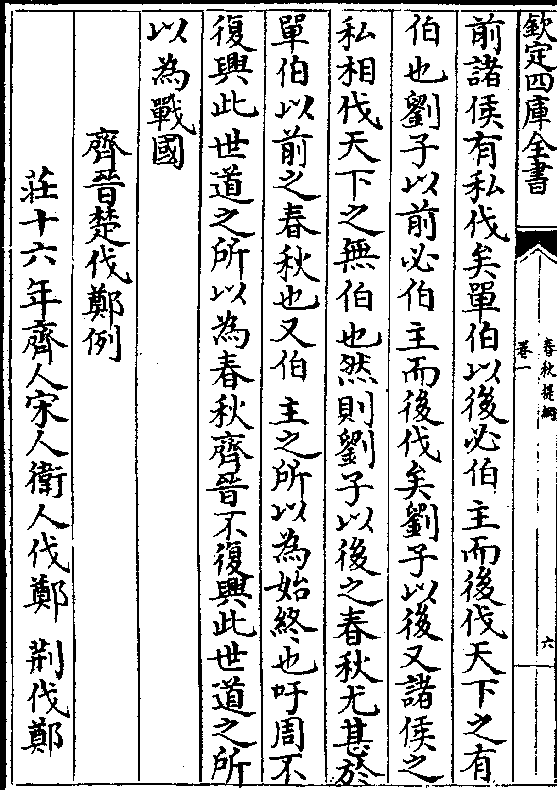 欽定四庫全書
春秋提綱
卷一
六
前諸侯有私伐矣單伯以後必伯主而後伐天下之有
伯也劉子以前必伯主而後伐矣劉子以後又諸侯之
私相伐天下之無伯也然則劉子以後之春秋尤甚於
單伯以前之春秋也又伯主之所以為始終也吁周不
復興此世道之所以為春秋齊晉不復興此世道之所
以為戰國
齊晉楚伐鄭例
莊十六年齊人宋人衛人伐鄭 荆伐鄭